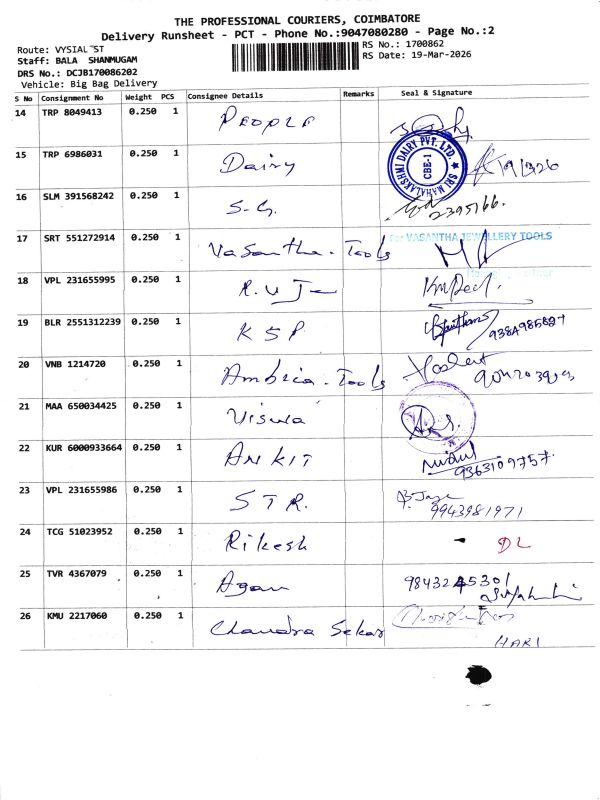 THE PROFESSIONAL COURIERS, COIMBATORE
Delivery Runsheet - PCT - Phone No.:9047080280 - Page No.:2
Route: VYSIAL ST
RS No.: 1700862
Staff: BALA SHANMUGAM
RS Date: 19-Mar-2026
DRS No.: DCJB170086202
Vehicle: Big Bag Delivery
S No Consignment No Weight PCS Consignee Details Remarks Seal & Signature
14 TRP 8049413 0.250 1 PEOPLE
15 TRP 6986031 0.250 1 Dairy SRI MAHALAKSHMI DAIRY PVT. LTD. CBE-1
16 SLM 391568242 0.250 1 S.G.
17 SRT 551272914 0.250 1 Vasantha. Tools For VASANTHA JEWELLERY TOOLS
18 VPL 231655995 0.250 1
19 BLR 2551312239 0.250 1 KSP
20 VNB 1214720 0.250 1 Ambica. Tools
21 MAA 650034425 0.250 1 Viswa
22 KUR 6000933664 0.250 1 ANKIT 9363109757.
23 VPL 231655986 0.250 1 STR. 9943981971
24 TCG 51023952 0.250 1 Rikesh DL
25 TVR 4367079 0.250 1 9843245301
26 KMU 2217060 0.250 1 Chandra Sekar HARI